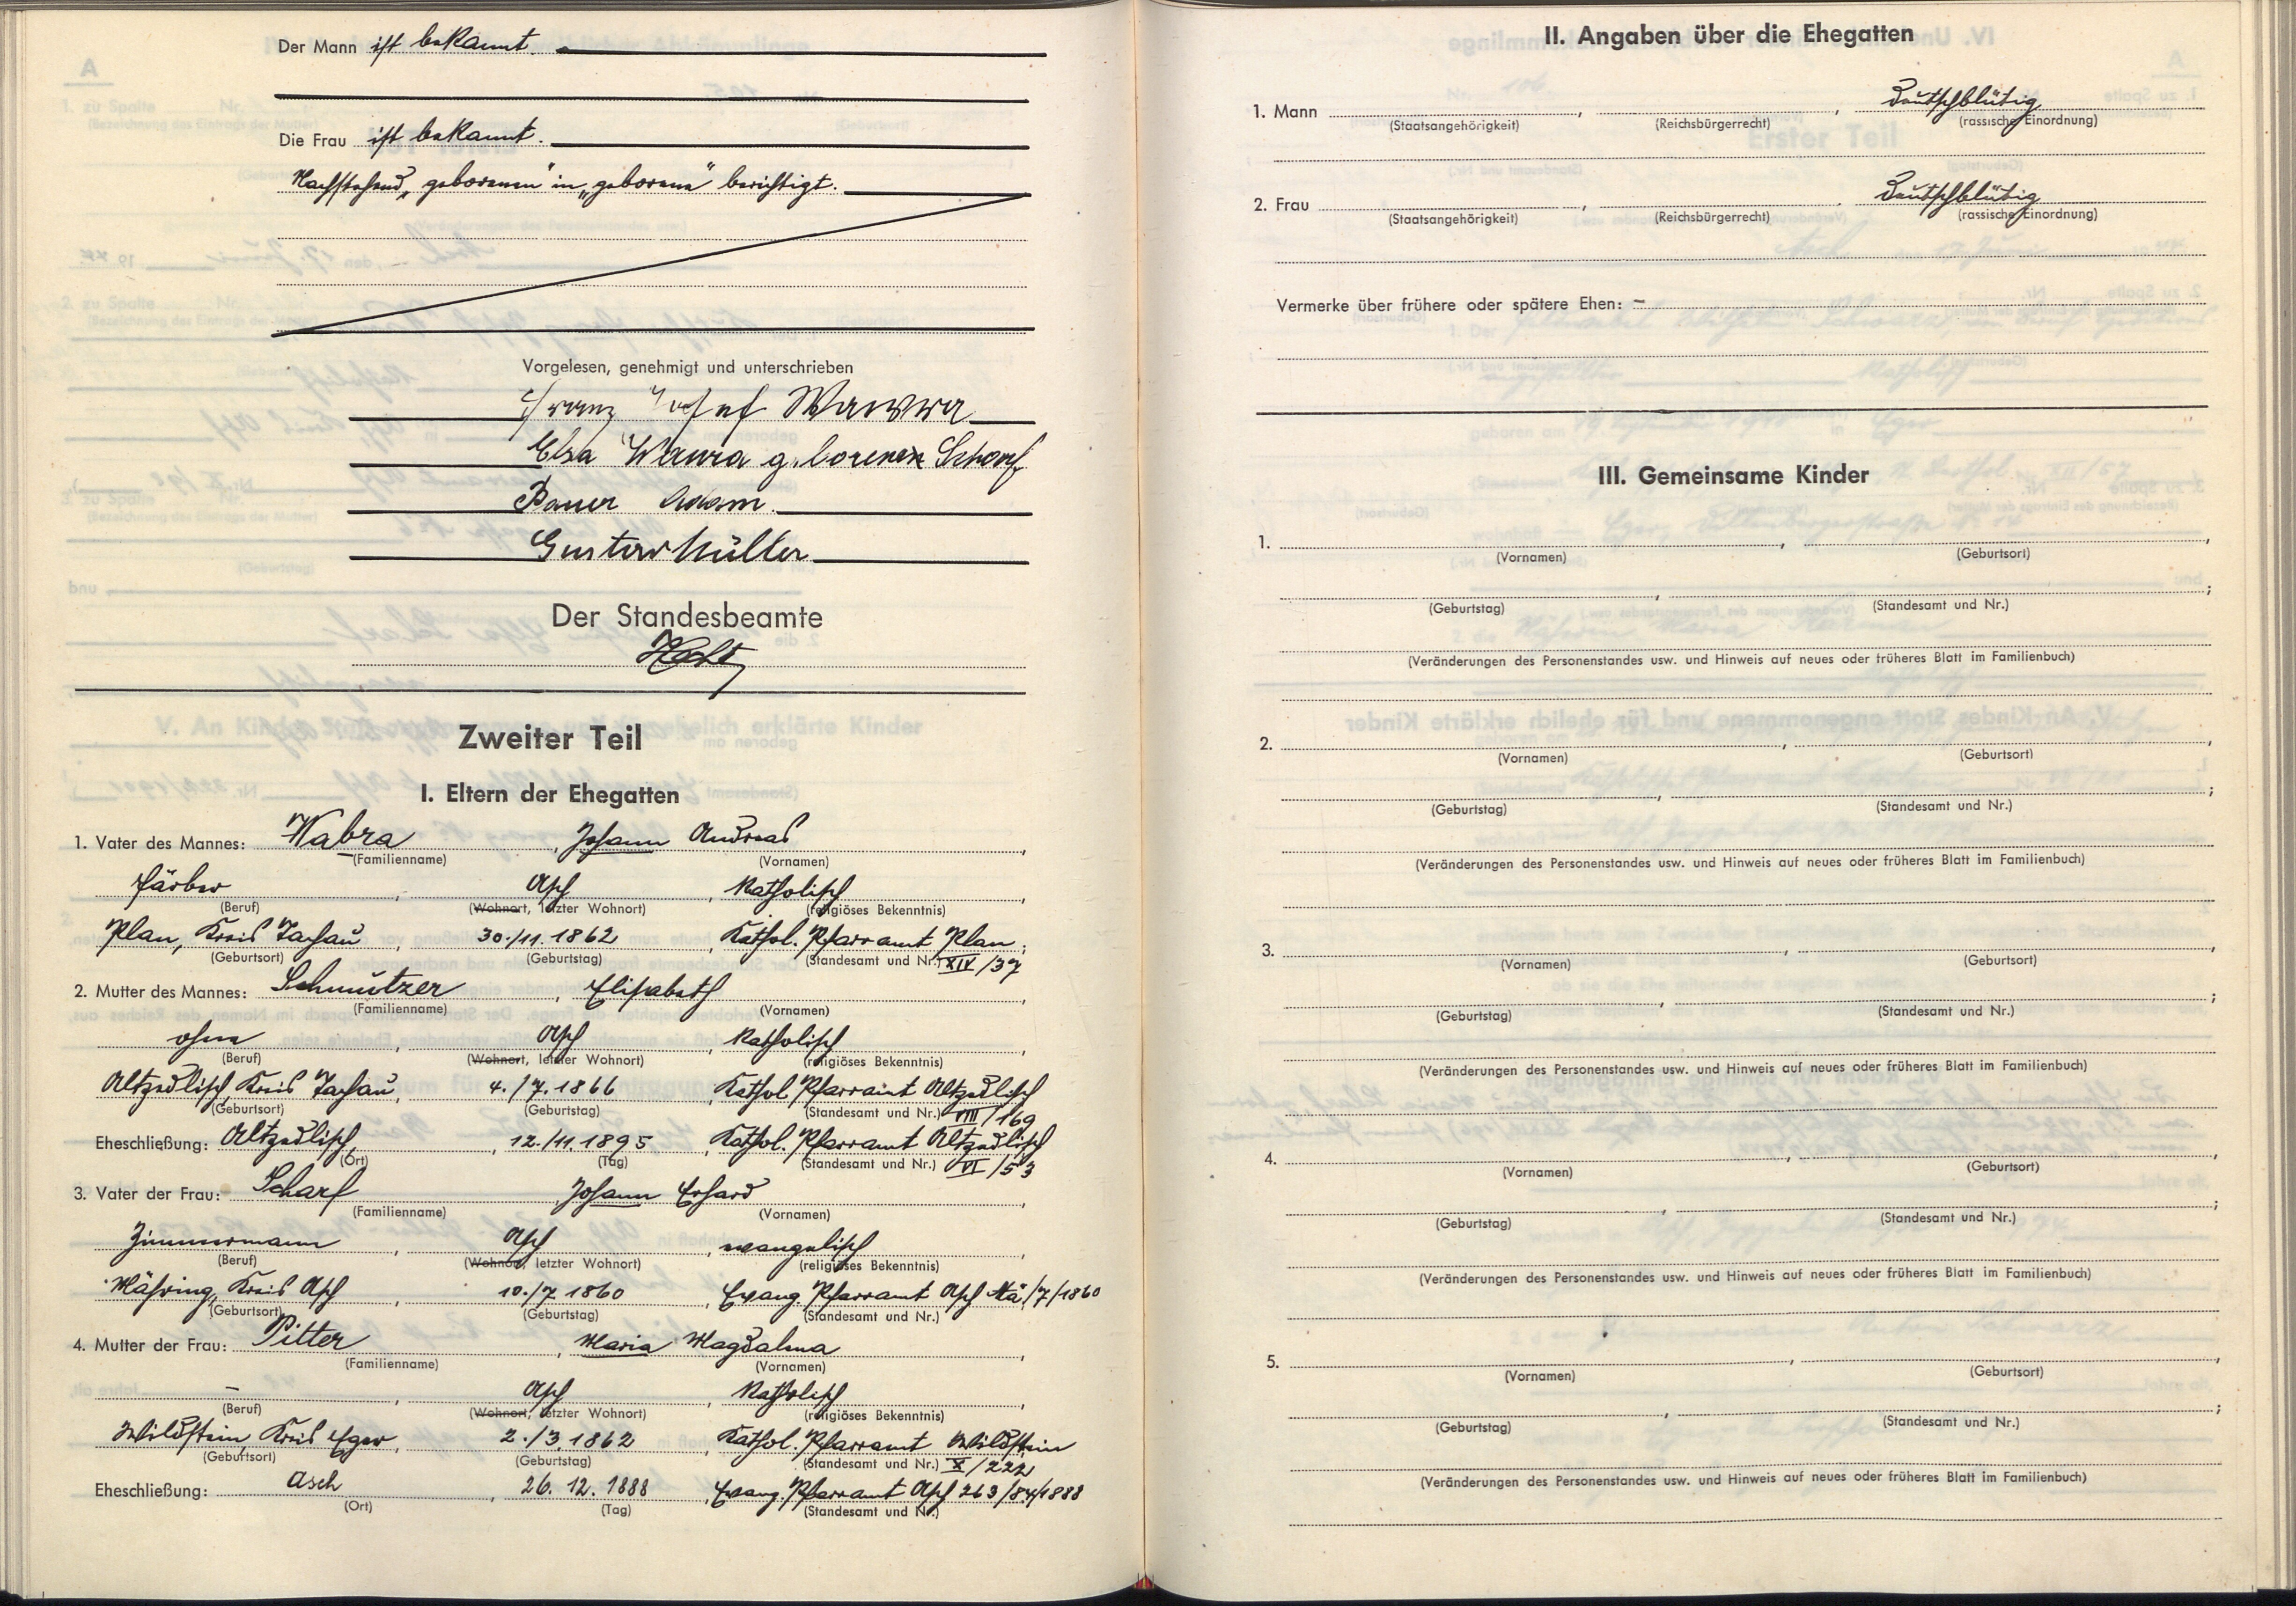 Der Mann ist bekannt.
Die Frau ist bekannt.
Nachstehend „geborenen" in „geborene" berichtigt.
Vorgelesen, genehmigt und unterschrieben
Franz Josef Wawra
Elsa Wawra geborenen Scharf
Bauer Adam
Gustav Müller
Der Standesbeamte
Zweiter Teil
I. Eltern der Ehegatten
1. Vater des Mannes: Wabra, Johann Andreas
(Familienname) (Vornamen)
Färber, Asch, Katholisch,
(Beruf) (Wohnort, letzter Wohnort) (religiöses Bekenntnis)
Plan, Kreis Tachau, 30./11.1862, Kathol. Pfarramt Plan;
(Geburtsort) (Geburtstag) (Standesamt und Nr.) XIV/37
2. Mutter des Mannes: Schmutzer, Elisabeth
(Familienname) (Vornamen)
ohne, Asch, Katholisch,
(Beruf) (Wohnort, letzter Wohnort) (religiöses Bekenntnis)
Altzedlisch, Kreis Tachau, 4./7.1866, Kathol Pfarramt Altzedlisch
(Geburtsort) (Geburtstag) (Standesamt und Nr.) VIII/169
Eheschließung: Altzedlisch, 12./11.1895, Kathol. Pfarramt Altzedlisch
(Ort) (Tag) (Standesamt und Nr.) VI/53
3. Vater der Frau: Scharf, Johann Erhard
(Familienname) (Vornamen)
Zimmermann, Asch, evangelisch,
(Beruf) (Wohnort, letzter Wohnort) (religiöses Bekenntnis)
Mähring, Kreis Asch, 10./7 1860, Evang Pfarramt Asch Mä/7/1860
(Geburtsort) (Geburtstag) (Standesamt und Nr.)
4. Mutter der Frau: Pitter, Maria Magdalena
(Familienname) (Vornamen)
–, Asch, Katholisch,
(Beruf) (Wohnort, letzter Wohnort) (religiöses Bekenntnis)
Wildstein, Kreis Eger, 2./3.1862, Kathol. Pfarramt Wildstein
(Geburtsort) (Geburtstag) (Standesamt und Nr.) X/222
Eheschließung: Asch, 26.12.1888, Evang. Pfarramt Asch 263/84/1888
(Ort) (Tag) (Standesamt und Nr.)
II. Angaben über die Ehegatten
1. Mann , , Deutschblütig
(Staatsangehörigkeit) (Reichsbürgerrecht) (rassische Einordnung)
2. Frau , , Deutschblütig
(Staatsangehörigkeit) (Reichsbürgerrecht) (rassische Einordnung)
Vermerke über frühere oder spätere Ehen: –
III. Gemeinsame Kinder
1. , ,
(Vornamen) (Geburtsort)
, ;
(Geburtstag) (Standesamt und Nr.)
(Veränderungen des Personenstandes usw. und Hinweis auf neues oder früheres Blatt im Familienbuch)
2. , ,
(Vornamen) (Geburtsort)
, ;
(Geburtstag) (Standesamt und Nr.)
(Veränderungen des Personenstandes usw. und Hinweis auf neues oder früheres Blatt im Familienbuch)
3. , ,
(Vornamen) (Geburtsort)
, ;
(Geburtstag) (Standesamt und Nr.)
(Veränderungen des Personenstandes usw. und Hinweis auf neues oder früheres Blatt im Familienbuch)
4. , ,
(Vornamen) (Geburtsort)
, ;
(Geburtstag) (Standesamt und Nr.)
(Veränderungen des Personenstandes usw. und Hinweis auf neues oder früheres Blatt im Familienbuch)
5. , ,
(Vornamen) (Geburtsort)
, ;
(Geburtstag) (Standesamt und Nr.)
(Veränderungen des Personenstandes usw. und Hinweis auf neues oder früheres Blatt im Familienbuch)